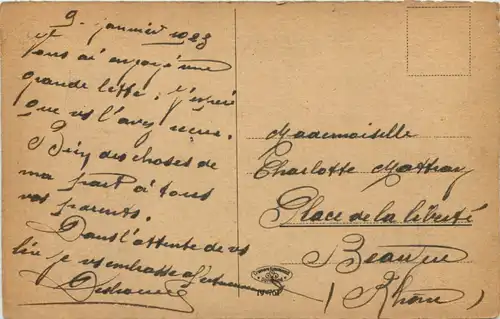 9 janvier 1923
Je
vous ai envoyé une
grande lettre, j'espère
que vs l'avez reçue.
Bien des choses de
ma part à tous
vos parents.
Dans l'attente de vs
lire je vs embrasse
Mademoiselle
Charlotte Mattray
Place de la liberté
Beaujeu
(Rhône)